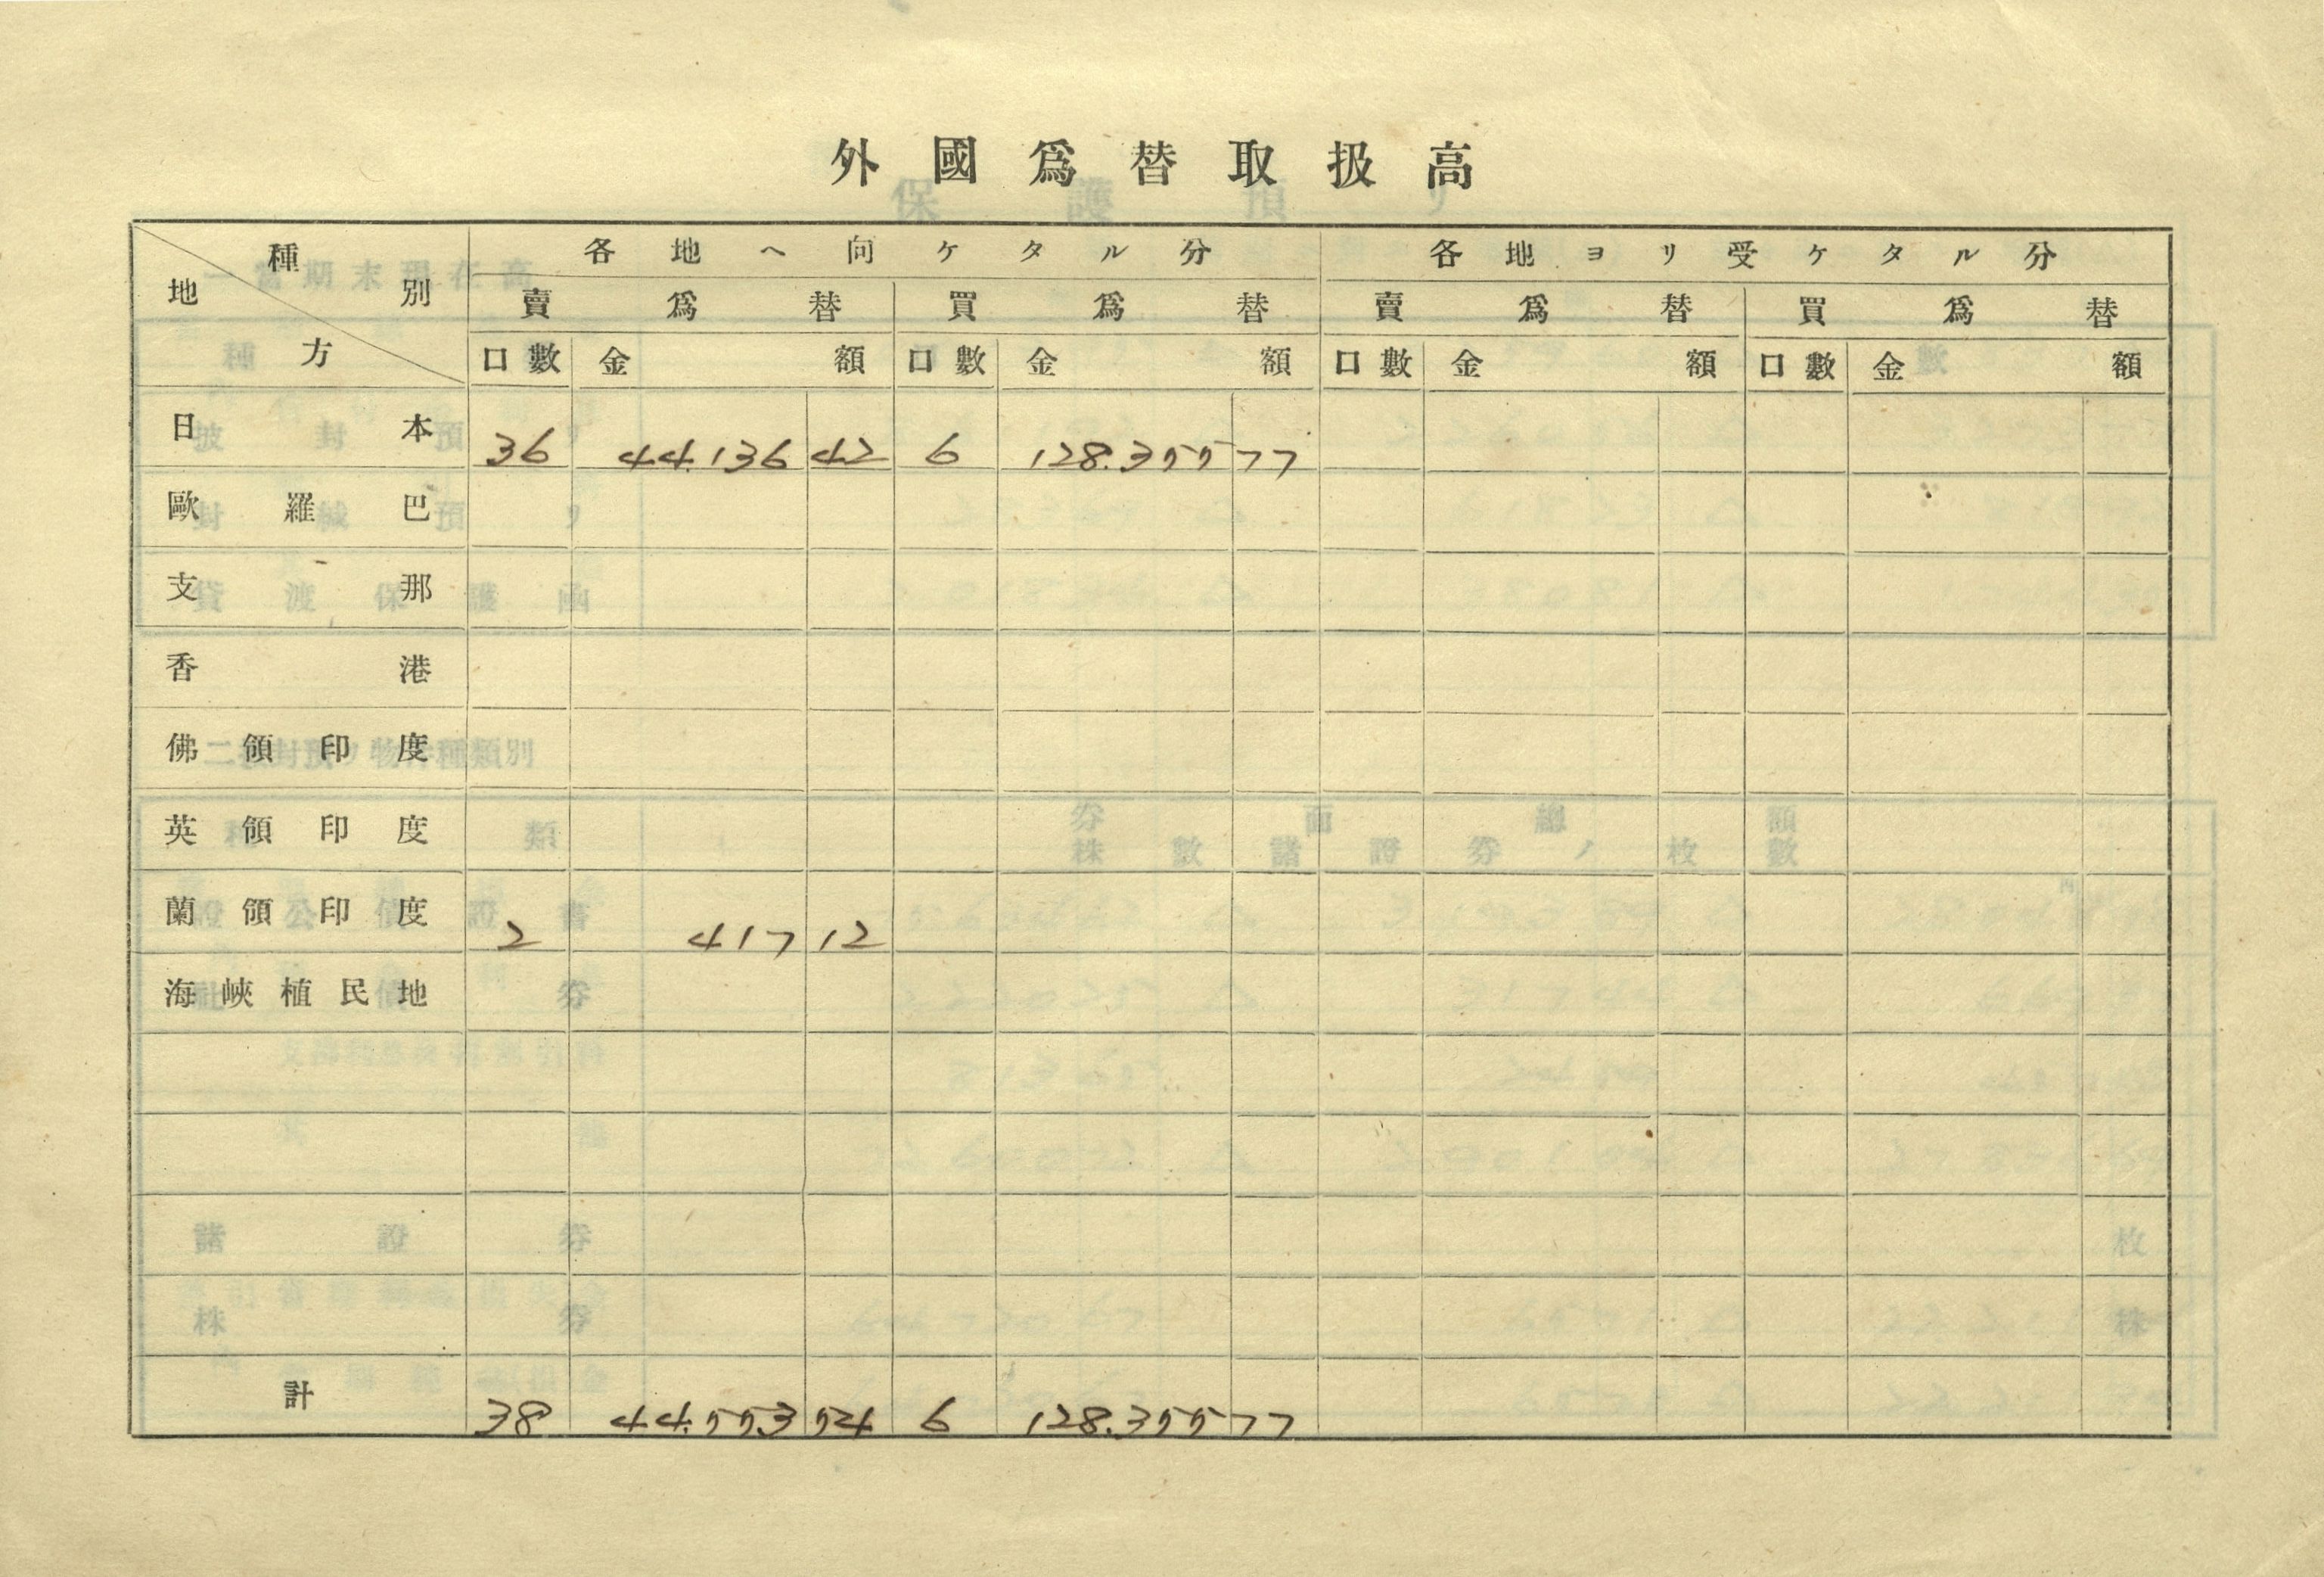 外國爲替取扱高
種別 地方 各地ヘ向ケタル分 各地ヨリ受ケタル分
賣爲替 買爲替 賣爲替 買爲替
口數 金額 口數 金額 口數 金額 口數 金額
日本 36 44.136 42 6 128.355 77
歐羅巴
支那
香港
佛領印度
英領印度
蘭領印度 2 417 12
海峽植民地
計 38 44.553 54 6 128.355 77